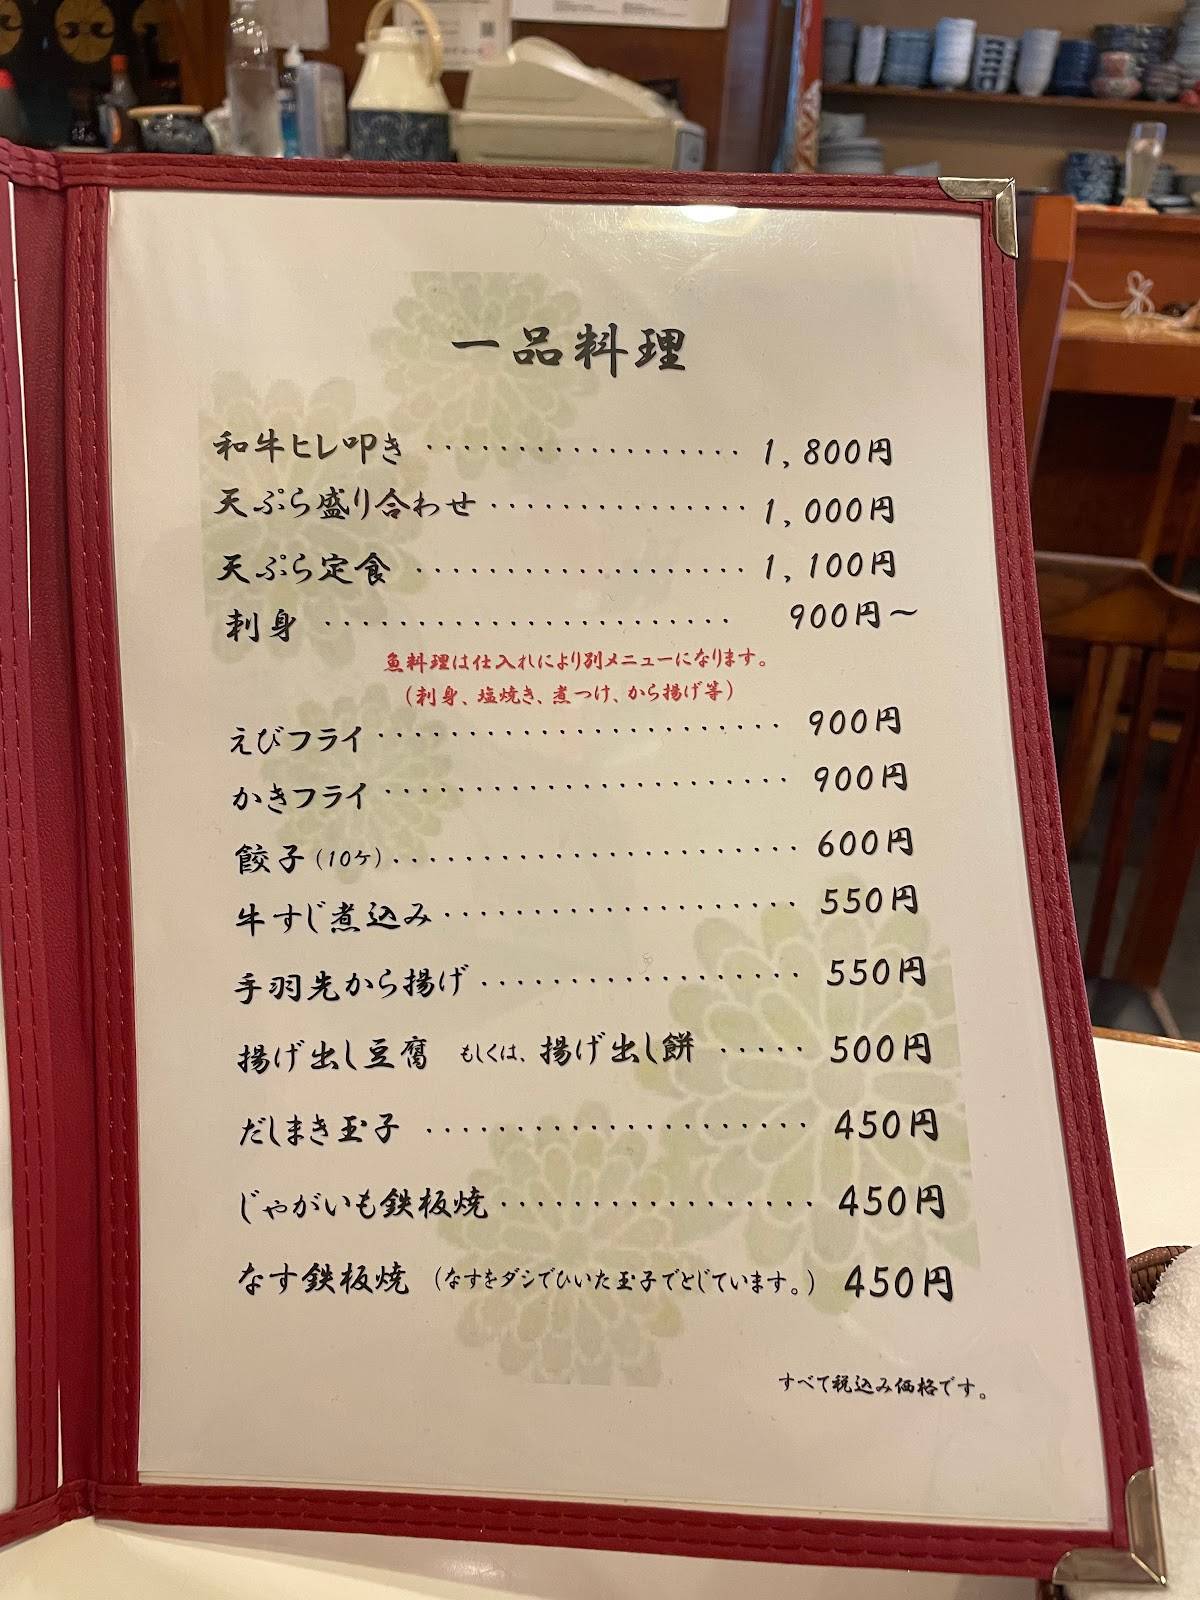 一品料理
和牛ヒレ叩き ‥‥‥‥‥‥‥‥‥ 1,800円
天ぷら盛り合わせ ‥‥‥‥‥‥‥ 1,000円
天ぷら定食 ‥‥‥‥‥‥‥‥‥ 1,100円
刺身 ‥‥‥‥‥‥‥‥‥‥‥ 900円～
魚料理は仕入れにより別メニューになります。
（刺身、塩焼き、煮つけ、から揚げ等）
えびフライ ‥‥‥‥‥‥‥‥‥‥‥ 900円
かきフライ ‥‥‥‥‥‥‥‥‥‥‥ 900円
餃子（10ケ） ‥‥‥‥‥‥‥‥‥‥‥ 600円
牛すじ煮込み ‥‥‥‥‥‥‥‥‥‥ 550円
手羽先から揚げ ‥‥‥‥‥‥‥‥‥ 550円
揚げ出し豆腐 もしくは、揚げ出し餅 ‥‥‥ 500円
だしまき玉子 ‥‥‥‥‥‥‥‥‥‥ 450円
じゃがいも鉄板焼 ‥‥‥‥‥‥‥‥‥ 450円
なす鉄板焼 （なすをダシでひいた玉子でとじています。） 450円
すべて税込み価格です。